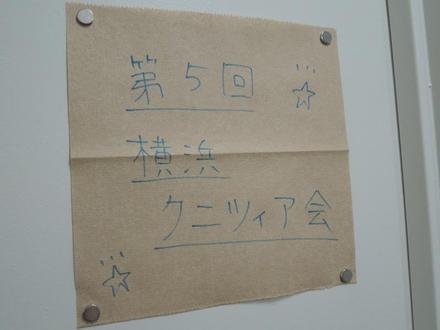 第5回
横浜
クニツィア会